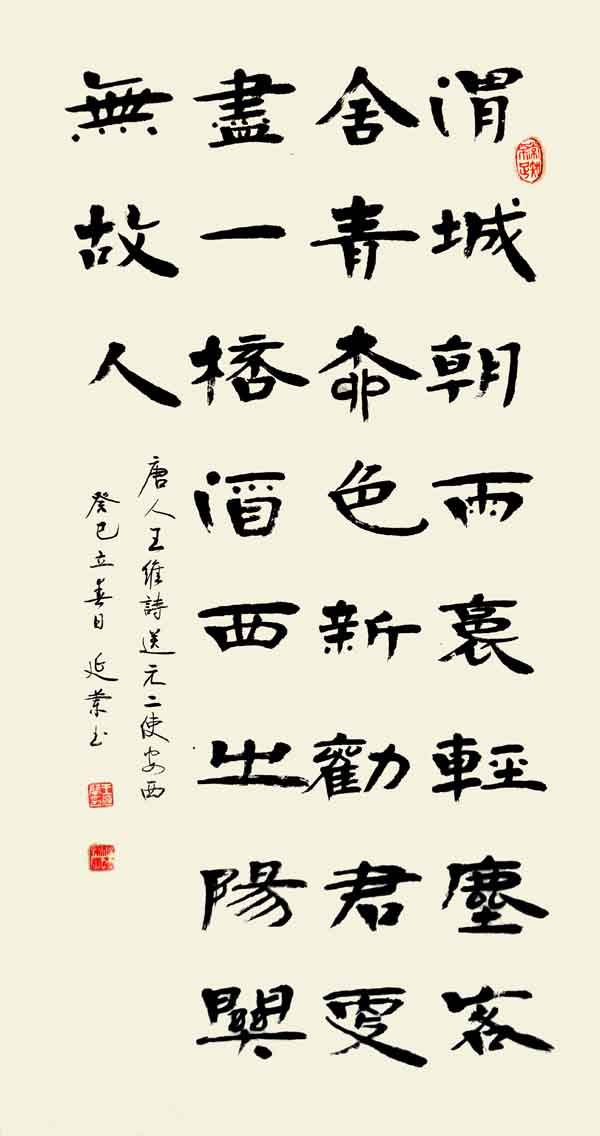 渭城朝雨裛輕塵客
舍青柳色新勸君更
盡一桮酒西出陽關
無故人
唐人王維詩送元二使安西
癸巳立春日延業书